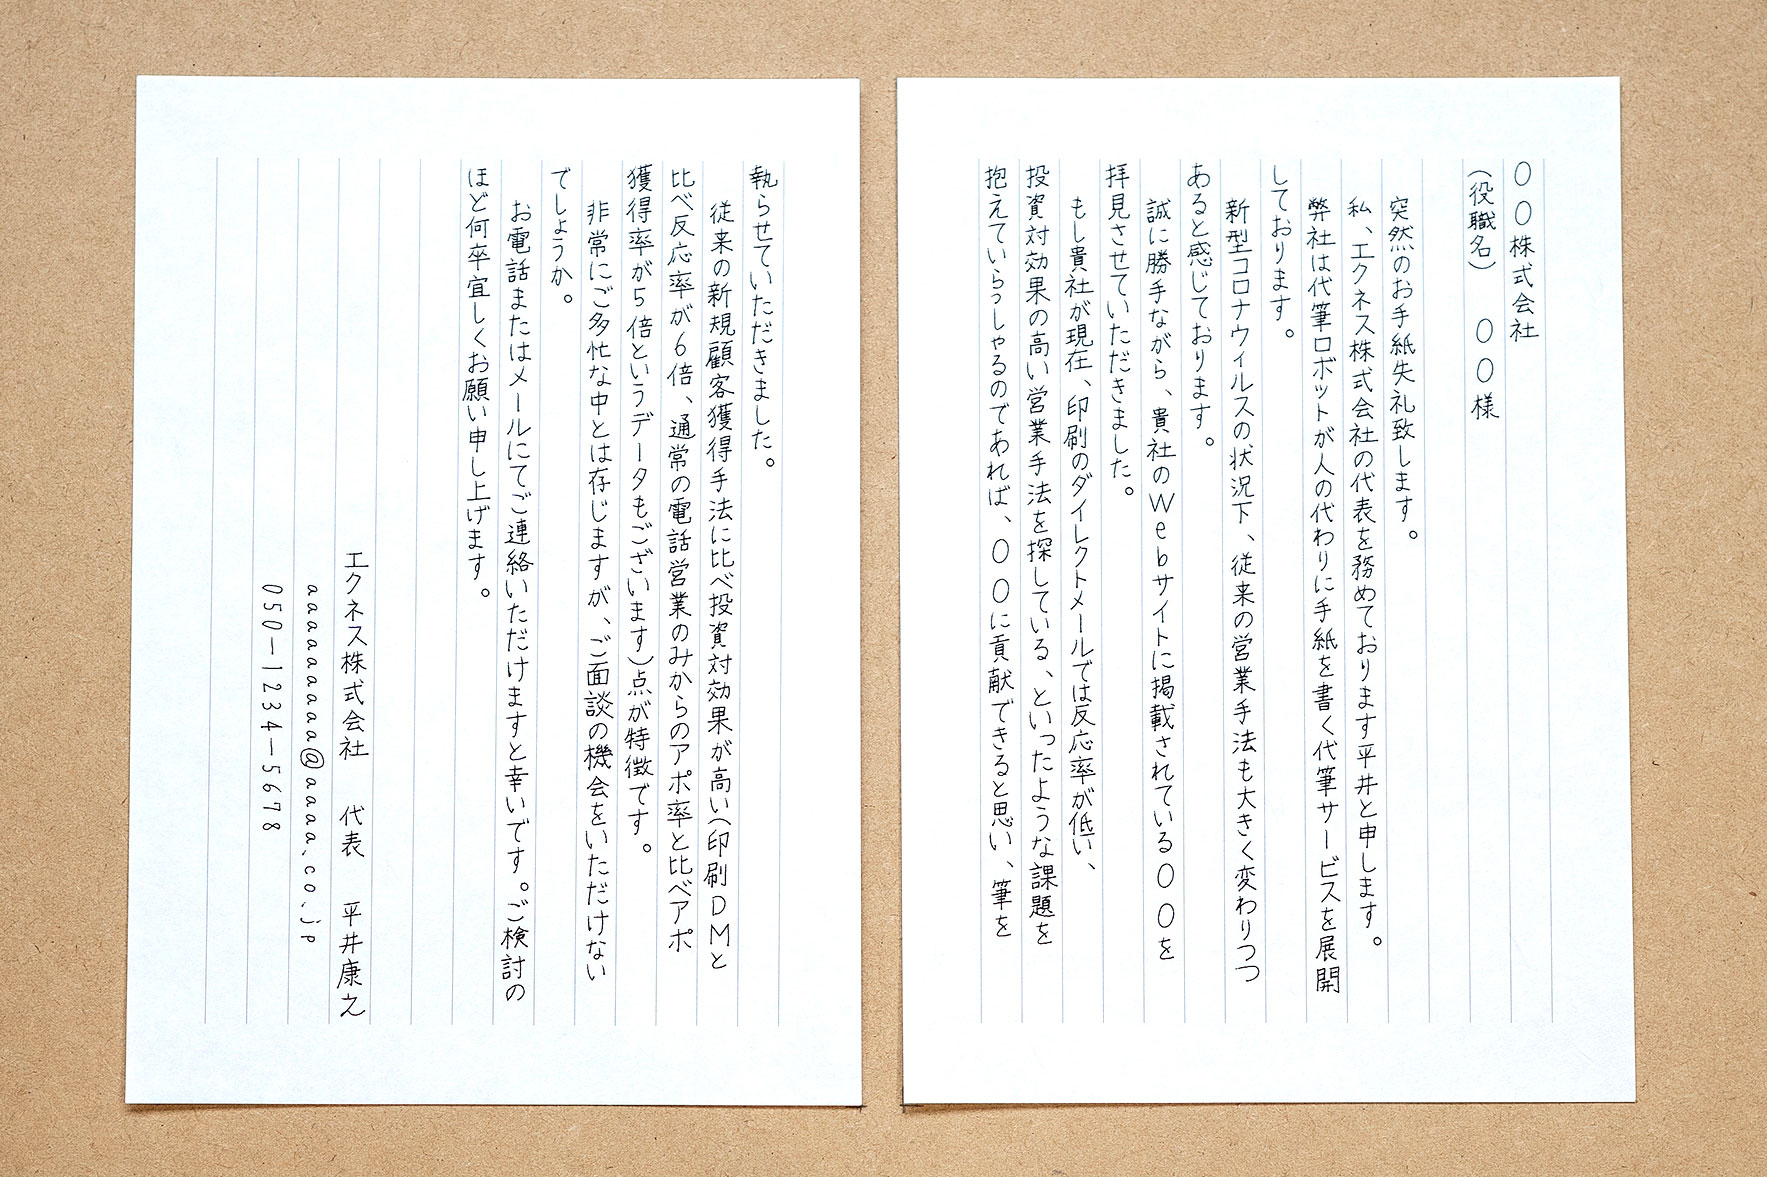 〇〇株式会社
(役職名)　〇〇様
突然のお手紙失礼致します。
私、エクネス株式会社の代表を務めております平井と申します。
弊社は代筆ロボットが人の代わりに手紙を書く代筆サービスを展開
しております。
新型コロナウィルスの状況下、従来の営業手法も大きく変わりつつ
あると感じております。
誠に勝手ながら、貴社のWebサイトに掲載されている〇〇を
拝見させていただきました。
もし貴社が現在、印刷のダイレクトメールでは反応率が低い、
投資対効果の高い営業手法を探している、といったような課題を
抱えていらっしゃるのであれば、〇〇に貢献できると思い、筆を
執らせていただきました。
従来の新規顧客獲得手法に比べ投資対効果が高い(印刷DMと
比べ反応率が6倍、通常の電話営業のみからのアポ率と比べアポ
獲得率が5倍というデータもございます)点が特徴です。
非常にご多忙な中とは存じますが、ご面談の機会をいただけない
でしょうか。
お電話またはメールにてご連絡いただけますと幸いです。ご検討の
ほど何卒宜しくお願い申し上げます。
エクネス株式会社　代表　平井康之
aaaaaaaaa@aaaa.co.jp
050-1234-5678